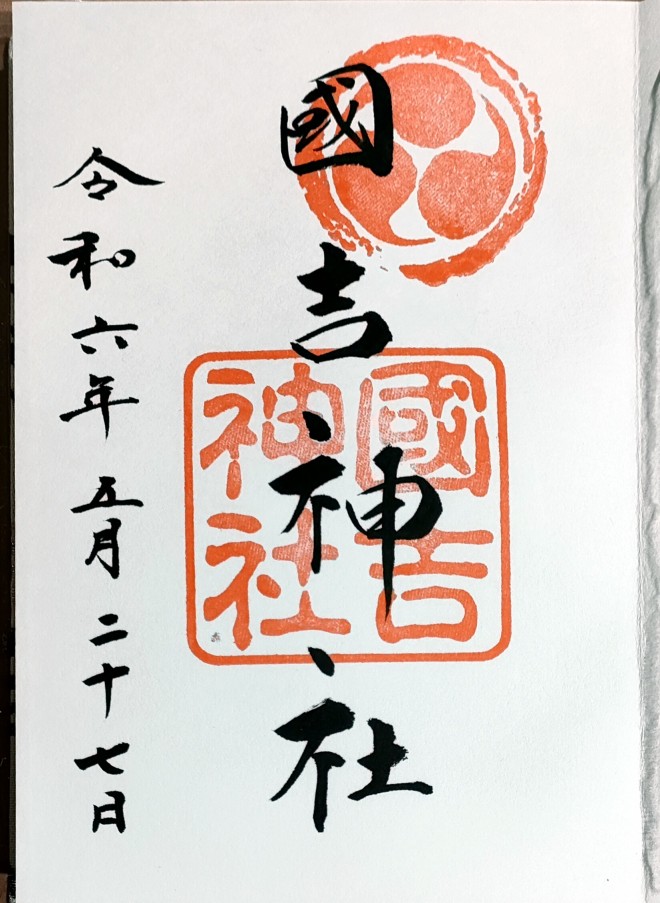 國吉神社
國吉
神社
令和六年五月二十七日